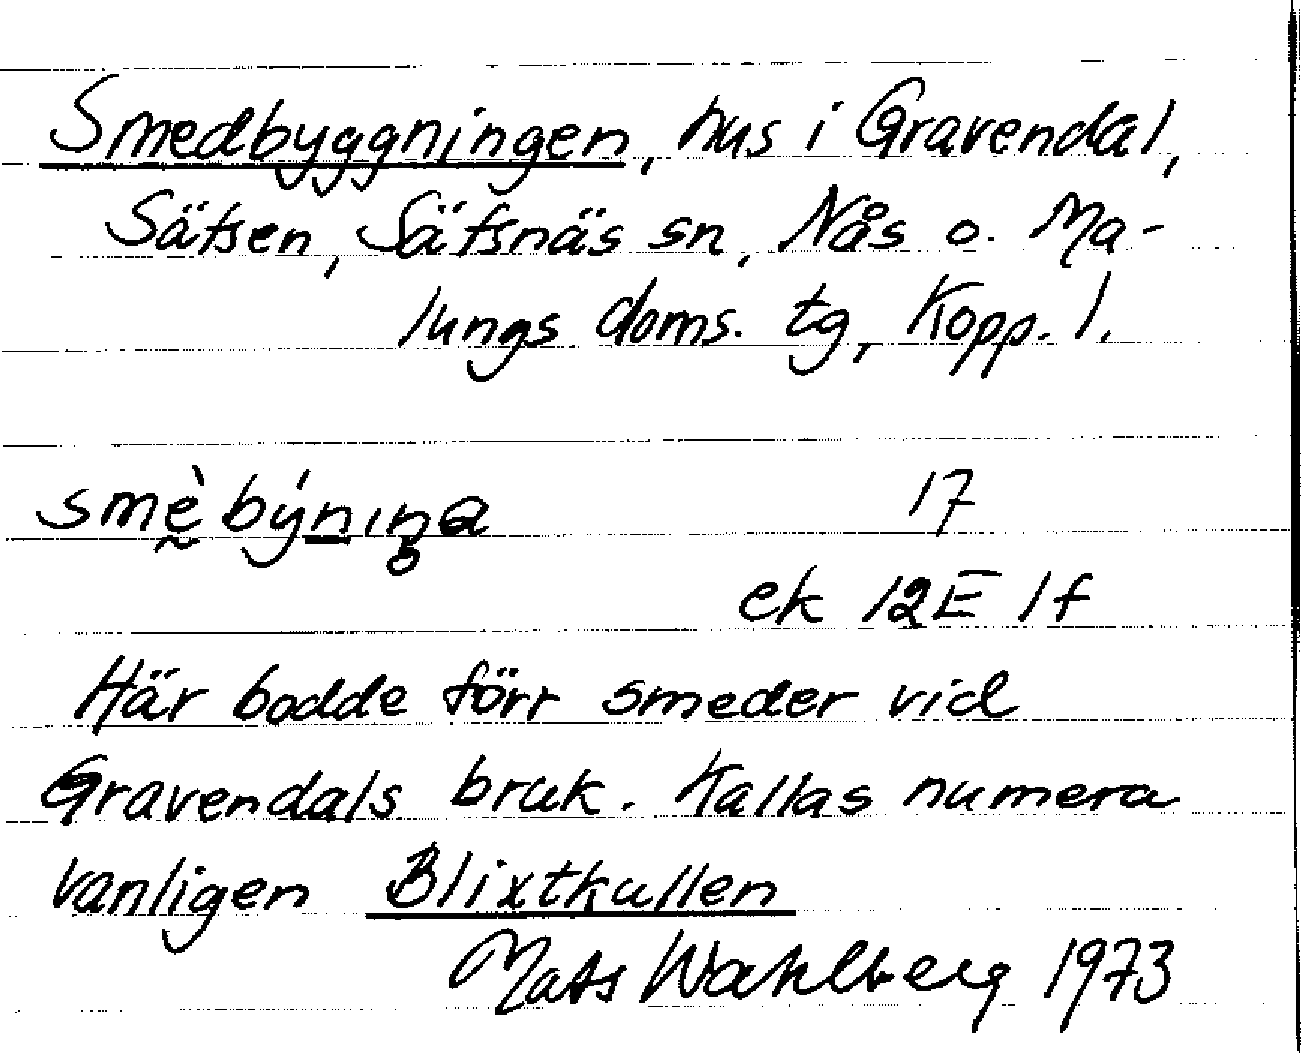 Smedbyggningen, hus i Gravendal,
Sätsen, Säfsnäs sn, Nås o. Ma-
lungs doms. tg, Kopp. l.
smḛ̀býnıŋa 17
ek 12E 1f
Här bodde förr smeder vid
Gravendals bruk. Kallas numera
vanligen Blixtkullen
Mats Wahlberg 1973